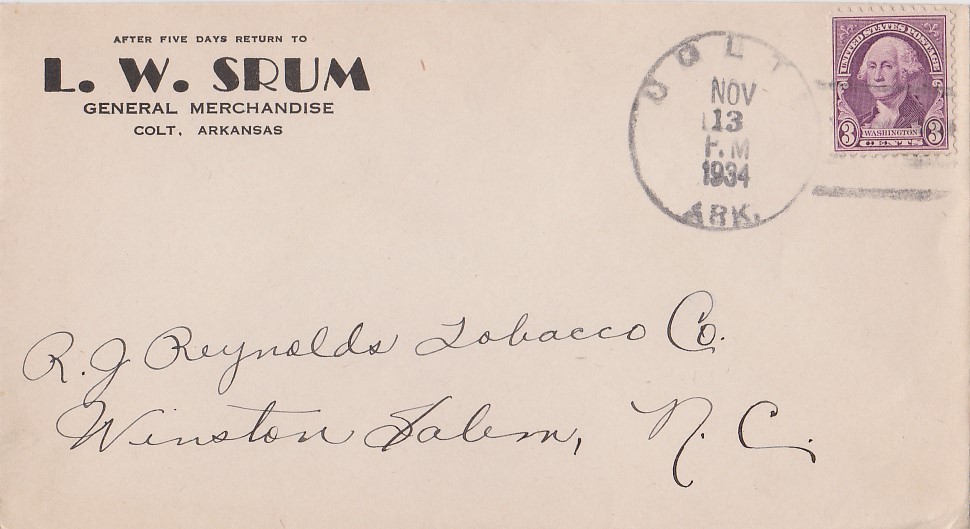 AFTER FIVE DAYS RETURN TO
L. W. SRUM
GENERAL MERCHANDISE
COLT, ARKANSAS
COLT
NOV
13
P.M
1934
ARK.
UNITED STATES POSTAGE
3 WASHINGTON 3
CENTS
R. J Reynolds Tobacco Co.
Winston Salem, N. C.